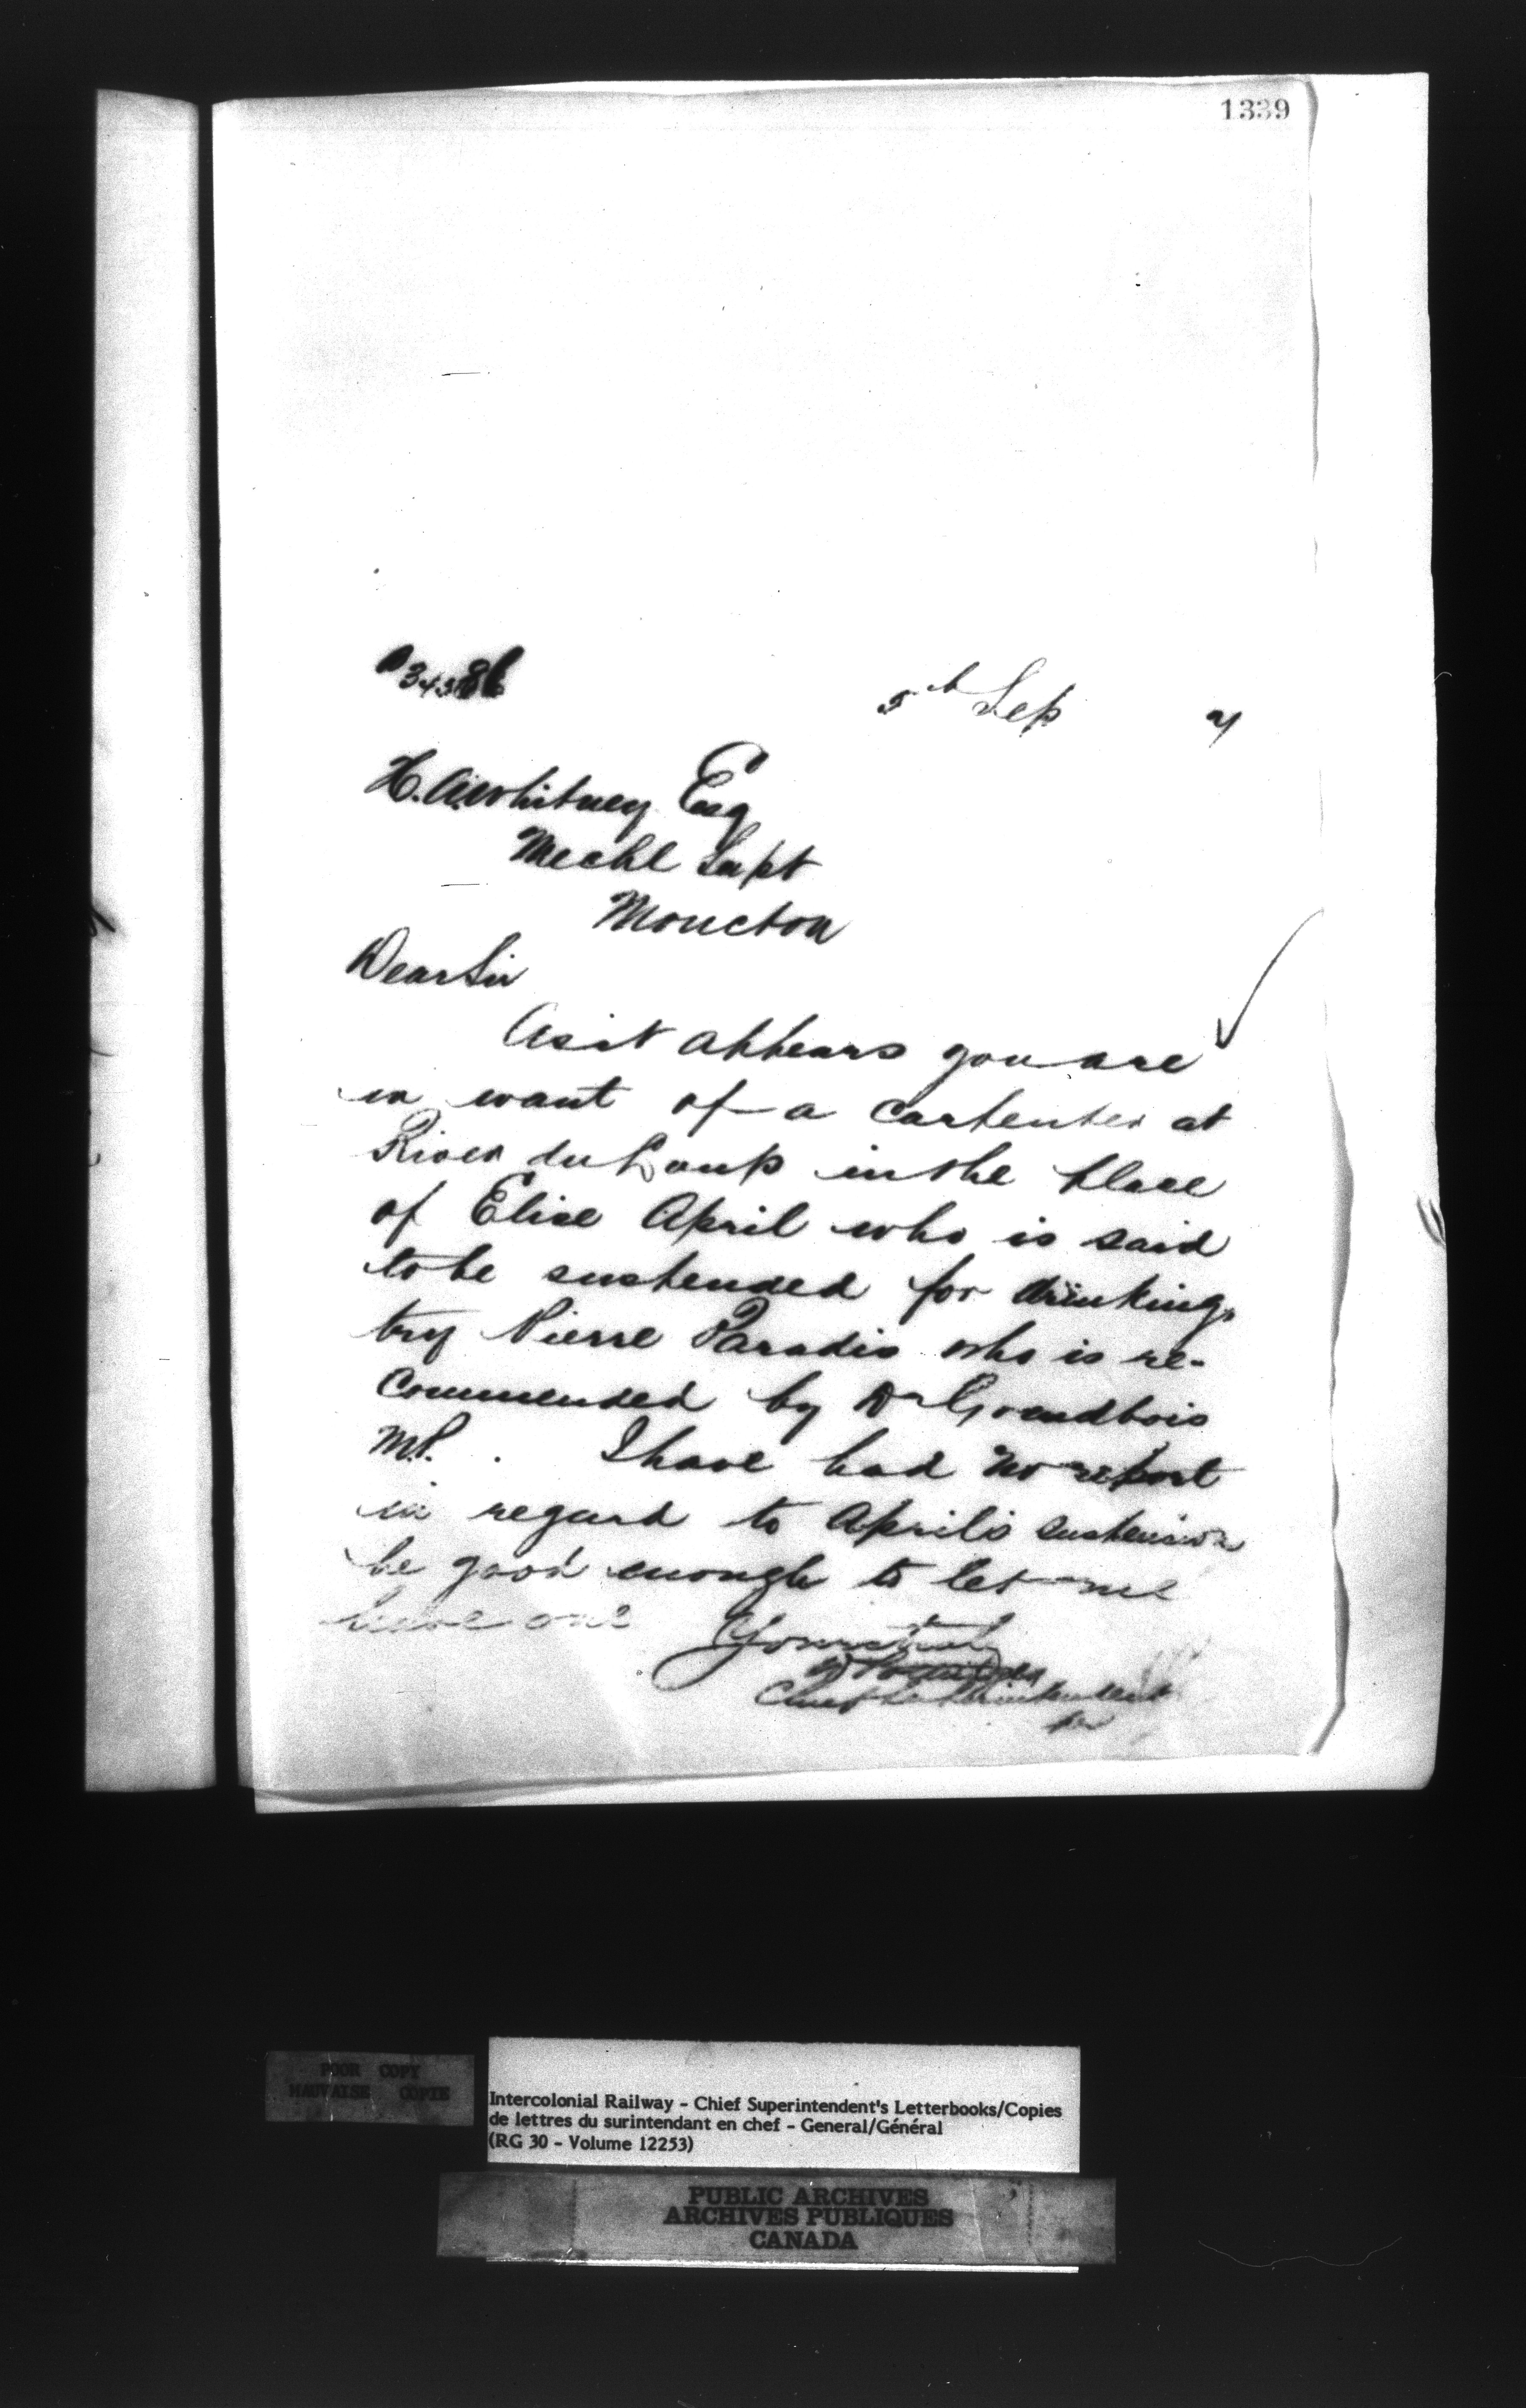 1339
5th Sep
H. A. Whitney Esq
Mechl Supt
Moncton
Dear Sir
As it appears you are
in want of a carpenter at
River du Loup in the place
of Elise April who is said
to be suspended for drinking,
try Pierre Paradis who is re-
commended by Dr Grandbois
M.P. I have had no report
in regard to April's suspension
be good enough to let me
have one
Yours truly
Chief Superintendent
POOR COPY
MAUVAISE COPIE
Intercolonial Railway - Chief Superintendent's Letterbooks/Copies
de lettres du surintendant en chef - General/Général
(RG 30 - Volume 12253)
PUBLIC ARCHIVES
ARCHIVES PUBLIQUES
CANADA